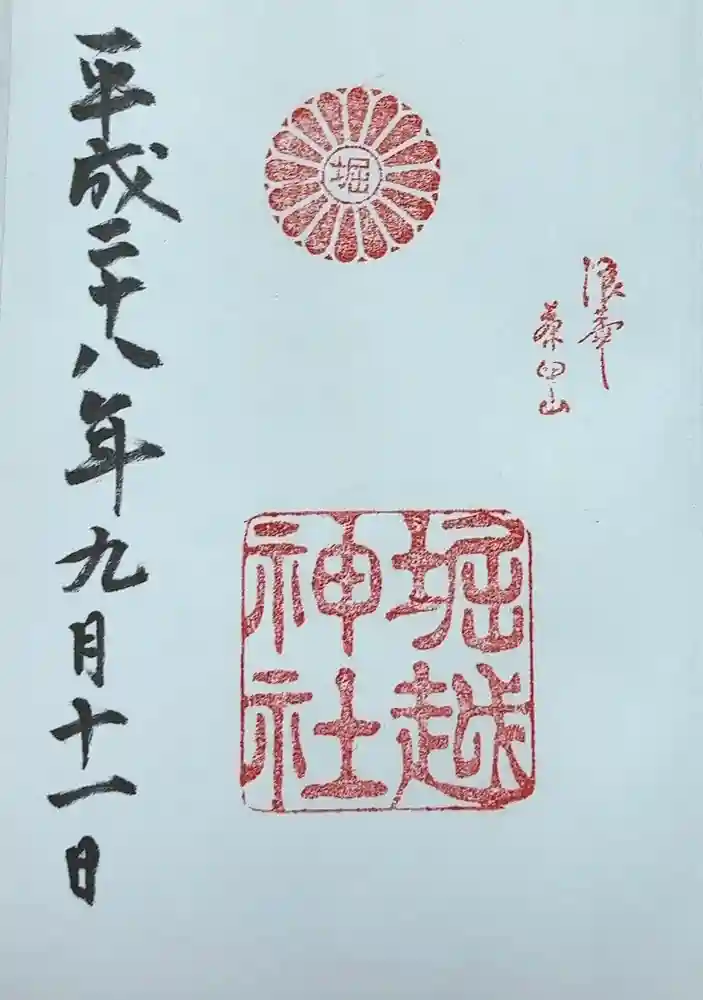 浪華
茶臼山
堀
堀越
神社
平成二十八年九月十一日